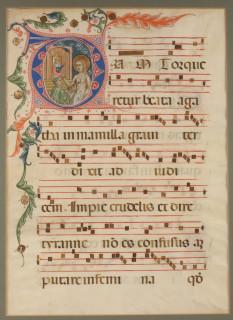 Dum torque
retur beata aga
tha in mamilla graui ter
dixit ad iudi
cem. Impie crudelis et dire
tyranne nō es confusus
putare in femi na qđ